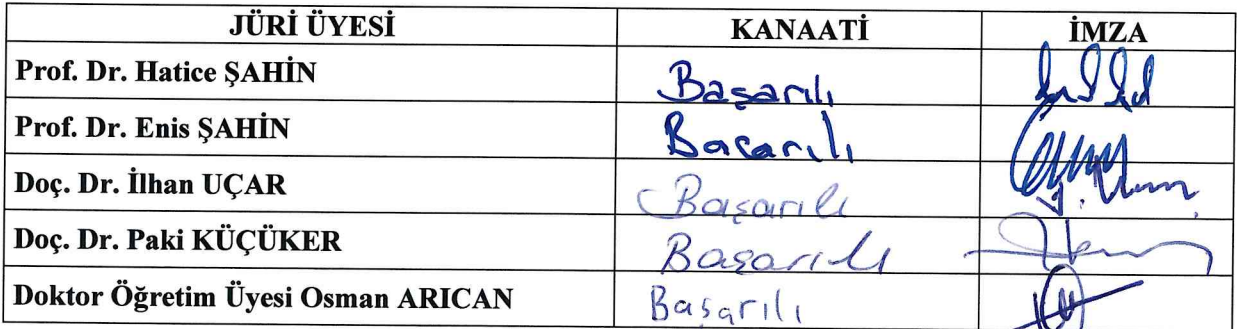 JÜRİ ÜYESİ KANAATİ İMZA
Prof. Dr. Hatice ŞAHİN Başarılı
Prof. Dr. Enis ŞAHİN Başarılı
Doç. Dr. İlhan UÇAR Başarılı
Doç. Dr. Paki KÜÇÜKER Başarılı
Doktor Öğretim Üyesi Osman ARICAN Başarılı